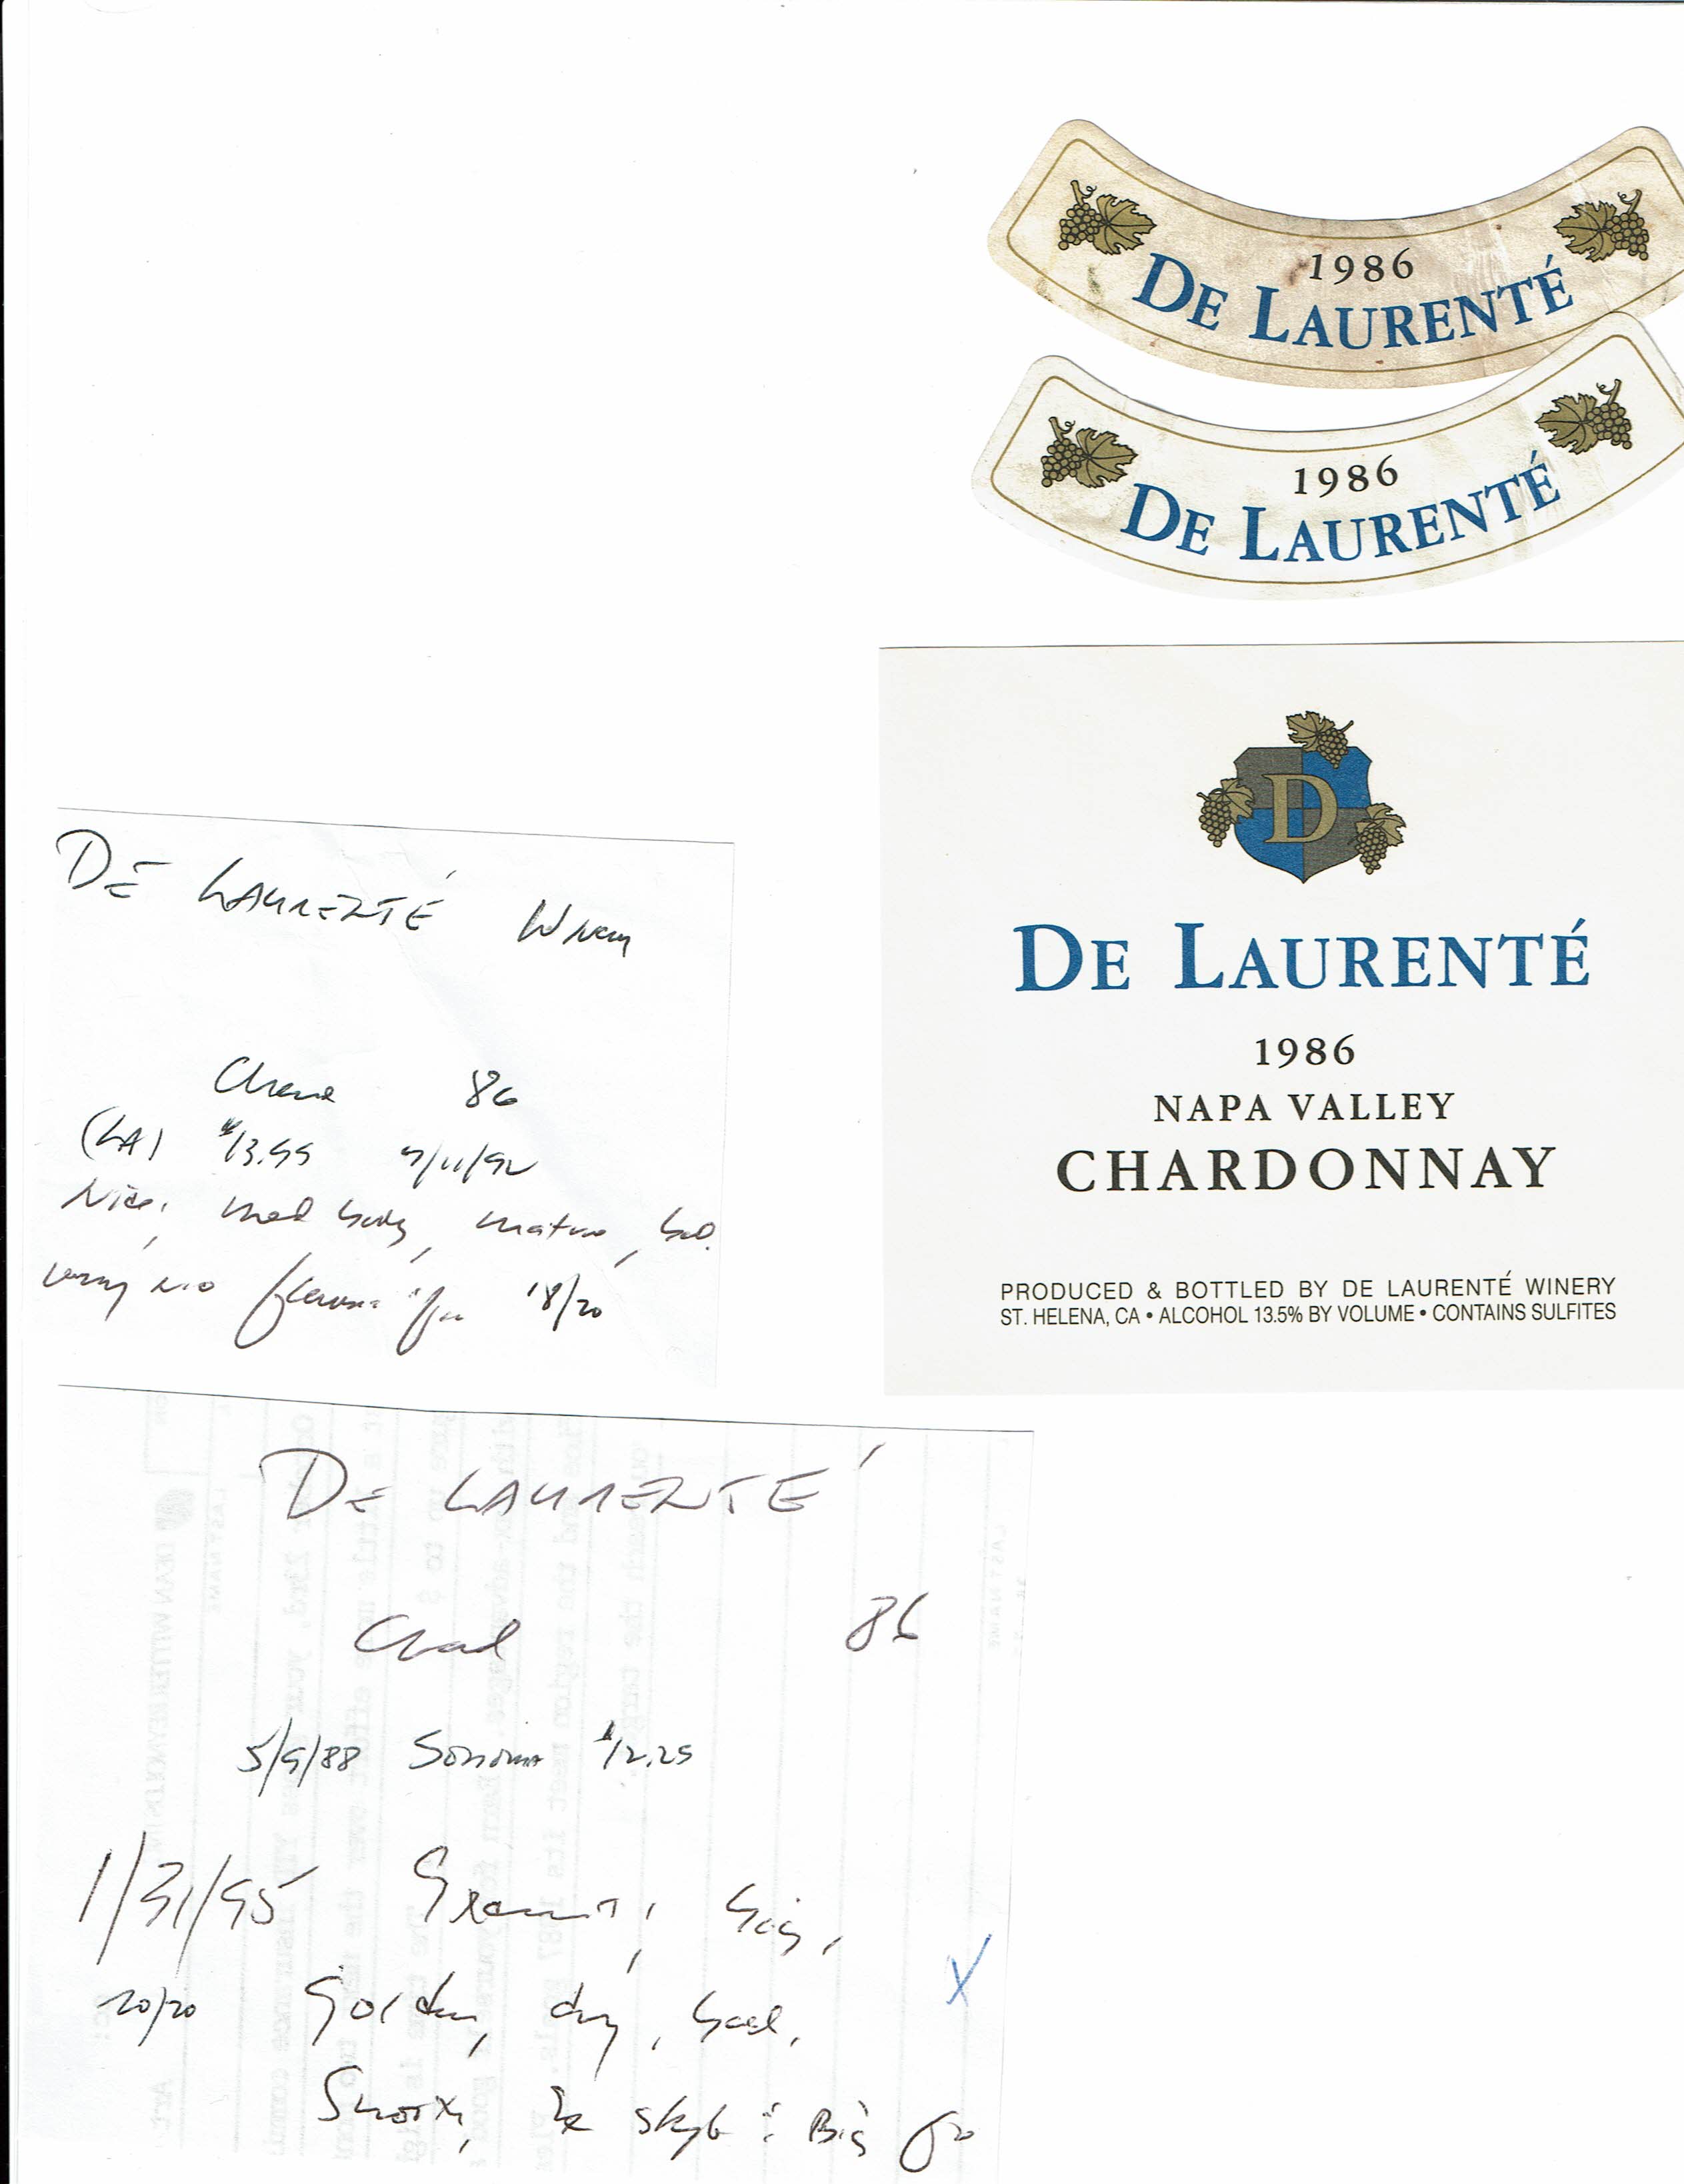 1986
DE LAURENTÉ
1986
DE LAURENTÉ
D
DE LAURENTÉ
1986
NAPA VALLEY
CHARDONNAY
PRODUCED & BOTTLED BY DE LAURENTÉ WINERY
ST. HELENA, CA • ALCOHOL 13.5% BY VOLUME • CONTAINS SULFITES
DE LAURENTÉ Winery
86
(LA) $13.99
Nice, med body, mature, bal.
very 18/20
DE LAURENTÉ
Chard 86
5/9/88 Sonoma $12.25
1/31/95 big,
20/20 Golden, dry, bal,
Smooth, Big